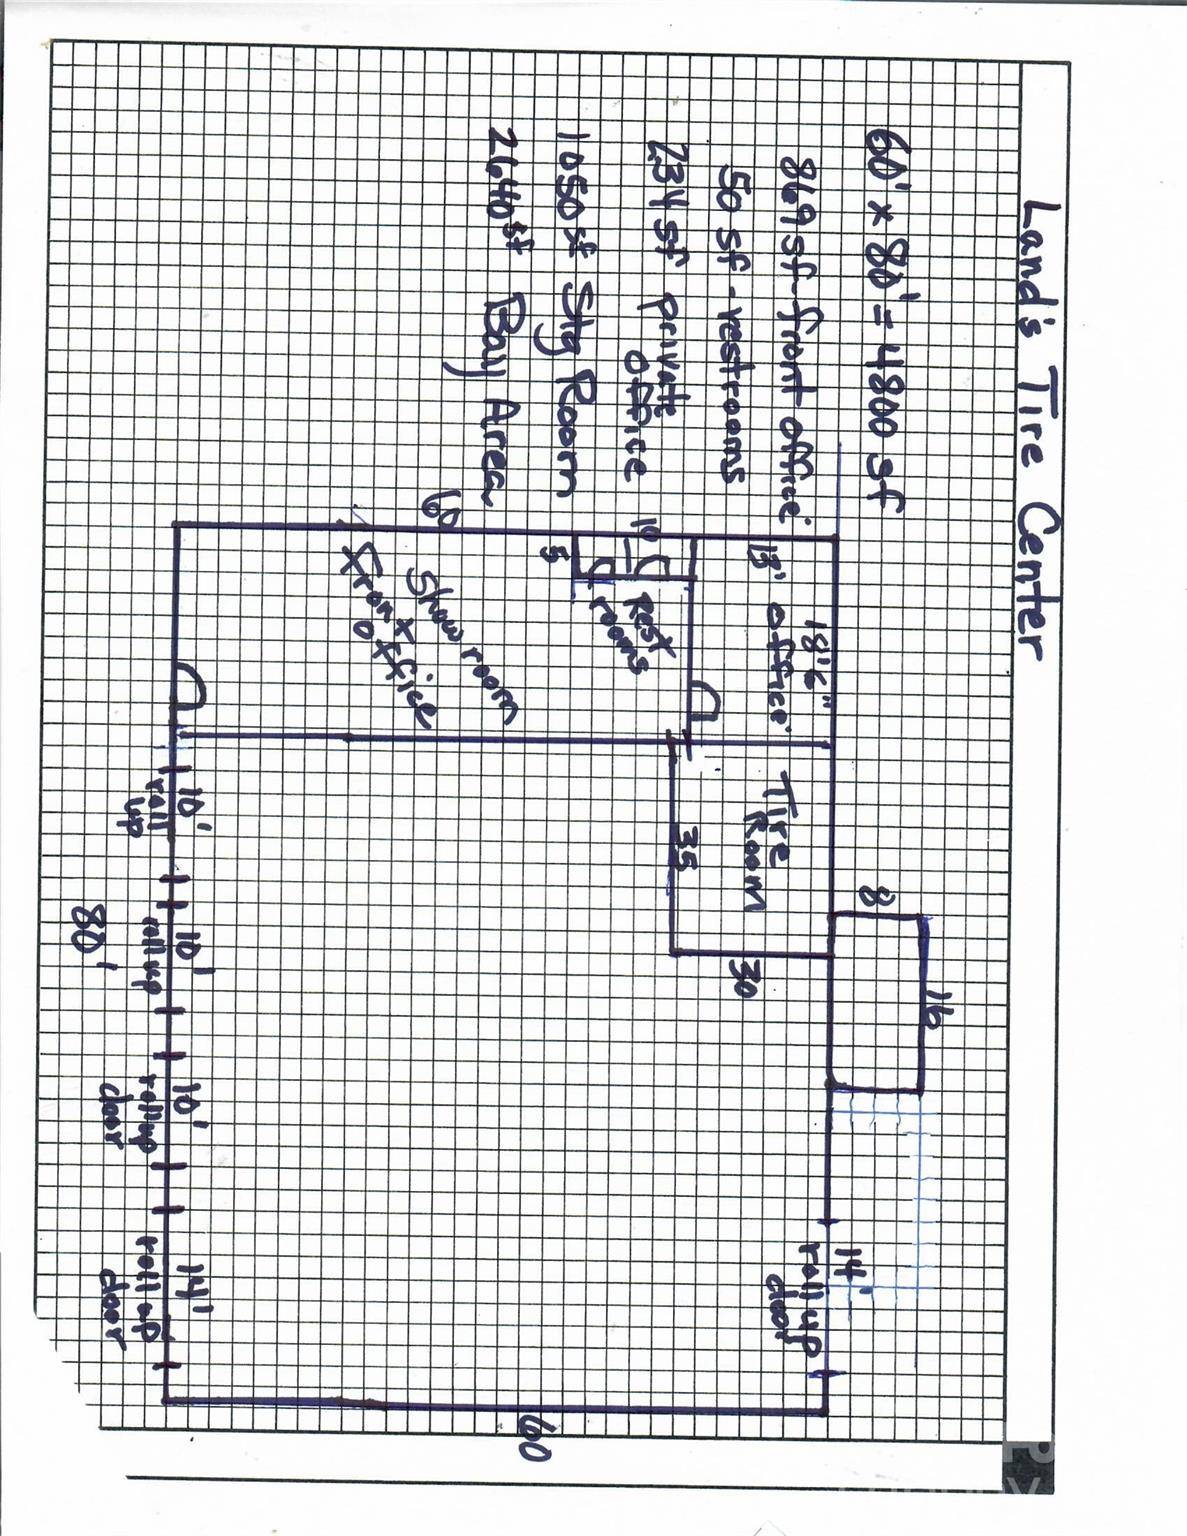 Land's Tire Center
60' x 80' = 4800 sf
869 sf - front office
50 sf - restrooms
234 sf private
office
1050 sf Stg Room
2640 sf Bay Area
16
8
18'6"
13' office
Tire
Room
14'
roll up
door
10
Rest
rooms
5
35
30
60
Show room
Front
office
60
10'
roll
up
10'
roll up
10'
roll up
door
14'
roll up
door
80'